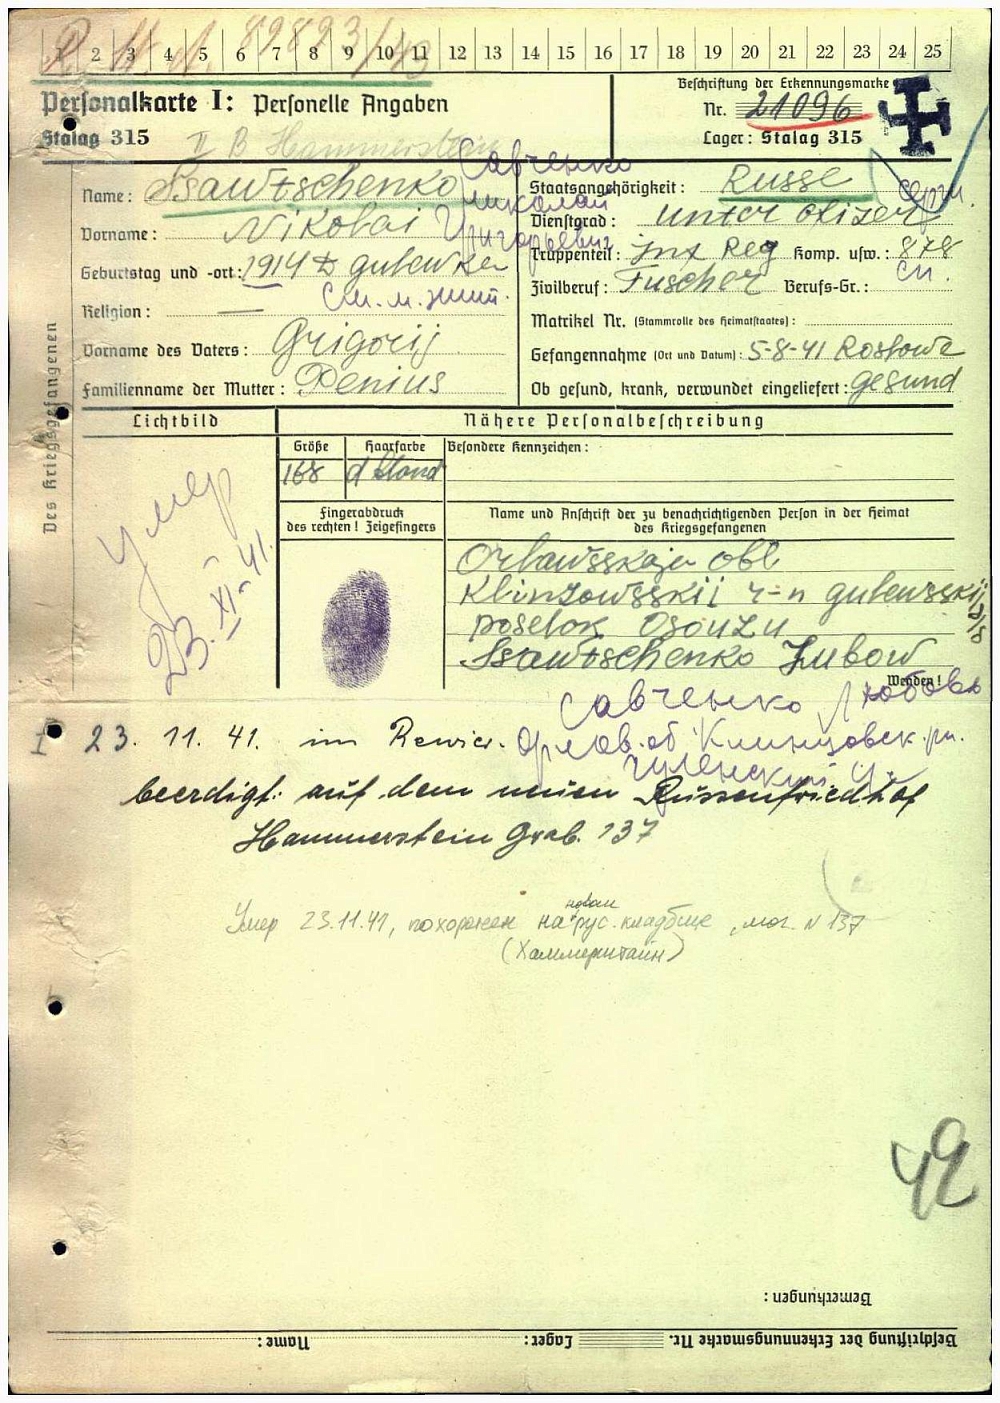 1 2 3 4 5 6 7 8 9 10 11 12 13 14 15 16 17 18 19 20 21 22 23 24 25
Personalkarte I: Personelle Angaben
Stalag 315
II B Hammerstein
Beschriftung der Erkennungsmarke
Nr. 21096
Lager: Stalag 315
Des Kriegsgefangenen
Name: Ssawtschenko
Савченко
Vorname: Nikolai
Николай
Григорьевич
Geburtstag und -ort: 1914
Religion: —
Vorname des Vaters: Grigorij
Familienname der Mutter: Denius
Staatsangehörigkeit: Russe
Dienstgrad: unter ofizer
Truppenteil: inf Reg Komp. usw.: 878
Zivilberuf: Berufs-Gr.:
Matrikel Nr. (Stammrolle des Heimatstaates):
Gefangennahme (Ort und Datum): 5-8-41
Ob gesund, krank, verwundet eingeliefert: gesund
Lichtbild
Умер
23.XI-41.
Nähere Personalbeschreibung
Größe Haarfarbe Besondere Kennzeichen:
168 d blond
Fingerabdruck
des rechten! Zeigefingers
Name und Anschrift der zu benachrichtigenden Person in der Heimat
des Kriegsgefangenen
Orlawsskaja obl
Klinzowsskii r-n
poselok
Ssawtschenko
Wenden!
Савченко Любовь
Орлов. об Клинцовск. рн.
23. 11. 41. im Revier.
beerdigt: auf dem neuen Russenfriedhof
Hammerstein Grab. 137
Умер 23.11.41, похоронен на новом рус. кладбище, мог. N 137
(Хаммерштайн)
42
Bemerkungen:
Beschriftung der Erkennungsmarke Nr. Lager: Name: